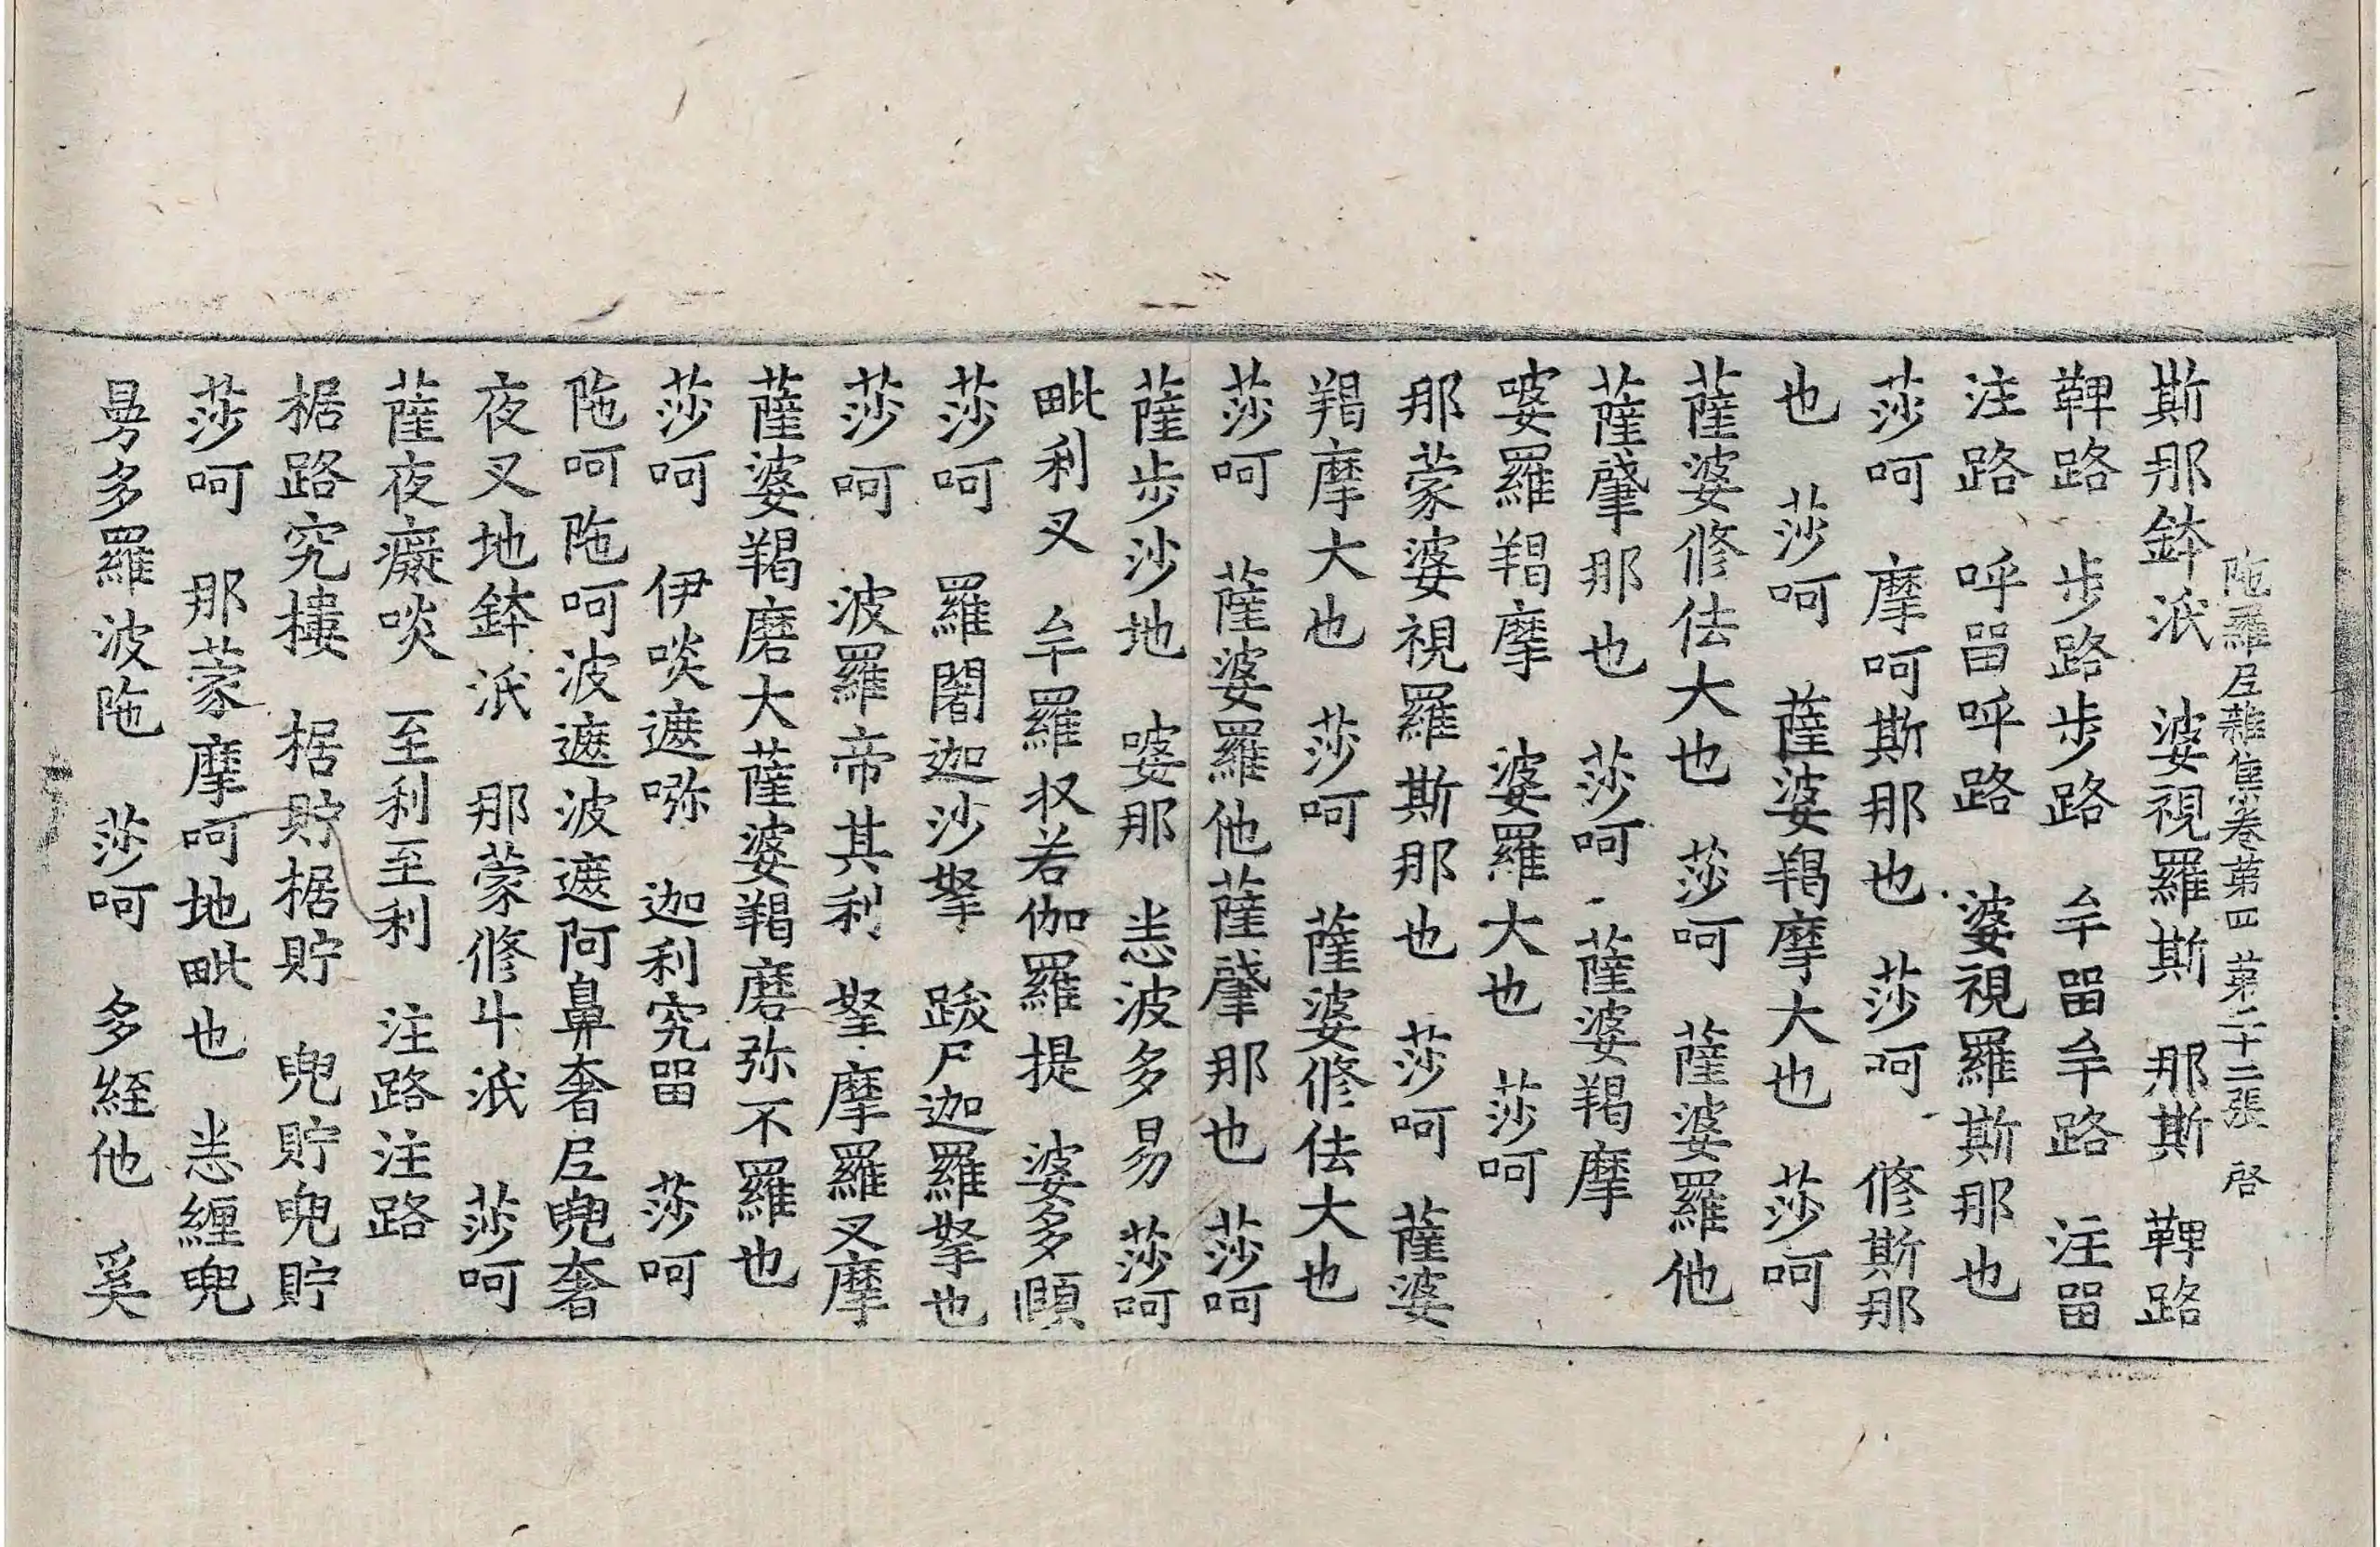 陁羅𡰱雜集卷第四　第二十二張　啓
斯那鉢泜　婆視羅斯　那斯　鞞路
鞞路　步路步路　牟畱牟路　注畱
注路　呼畱呼路　婆視羅斯那也
莎呵　摩呵斯那也　莎呵　修斯那
也　莎呵　薩婆羯摩大也　莎呵
薩婆修佉大也　莎呵　薩婆羅他
薩肈那也　莎呵　薩婆羯摩
婆羅羯摩　婆羅大也　莎呵
那蒙婆視羅斯那也　莎呵　薩婆
羯摩大也　莎呵　薩婆修佉大也
莎呵　薩婆羅他薩肈那也　莎呵
薩步沙地　婆那　恚波多易　莎呵
毗利叉　牟羅杈若伽羅提　婆多頤
莎呵　羅闍迦沙拏　跋尸迦羅拏也
莎呵　波羅帝其利　拏摩羅叉摩
薩婆羯磨大薩婆羯磨弥不羅也
莎呵　伊啖遮㖿　迦利究畱　莎呵
陁呵陁呵波遮波遮阿鼻奢𡰱兜奢
夜叉地鉢泜　那蒙修斗泜　莎呵
薩夜癡啖　至利至利　注路注路
椐路究摟　椐貯椐貯　兜貯兜貯
莎呵　那蒙摩呵地毗也　恚纏兜
多羅波陁　莎呵　多緻他　奚